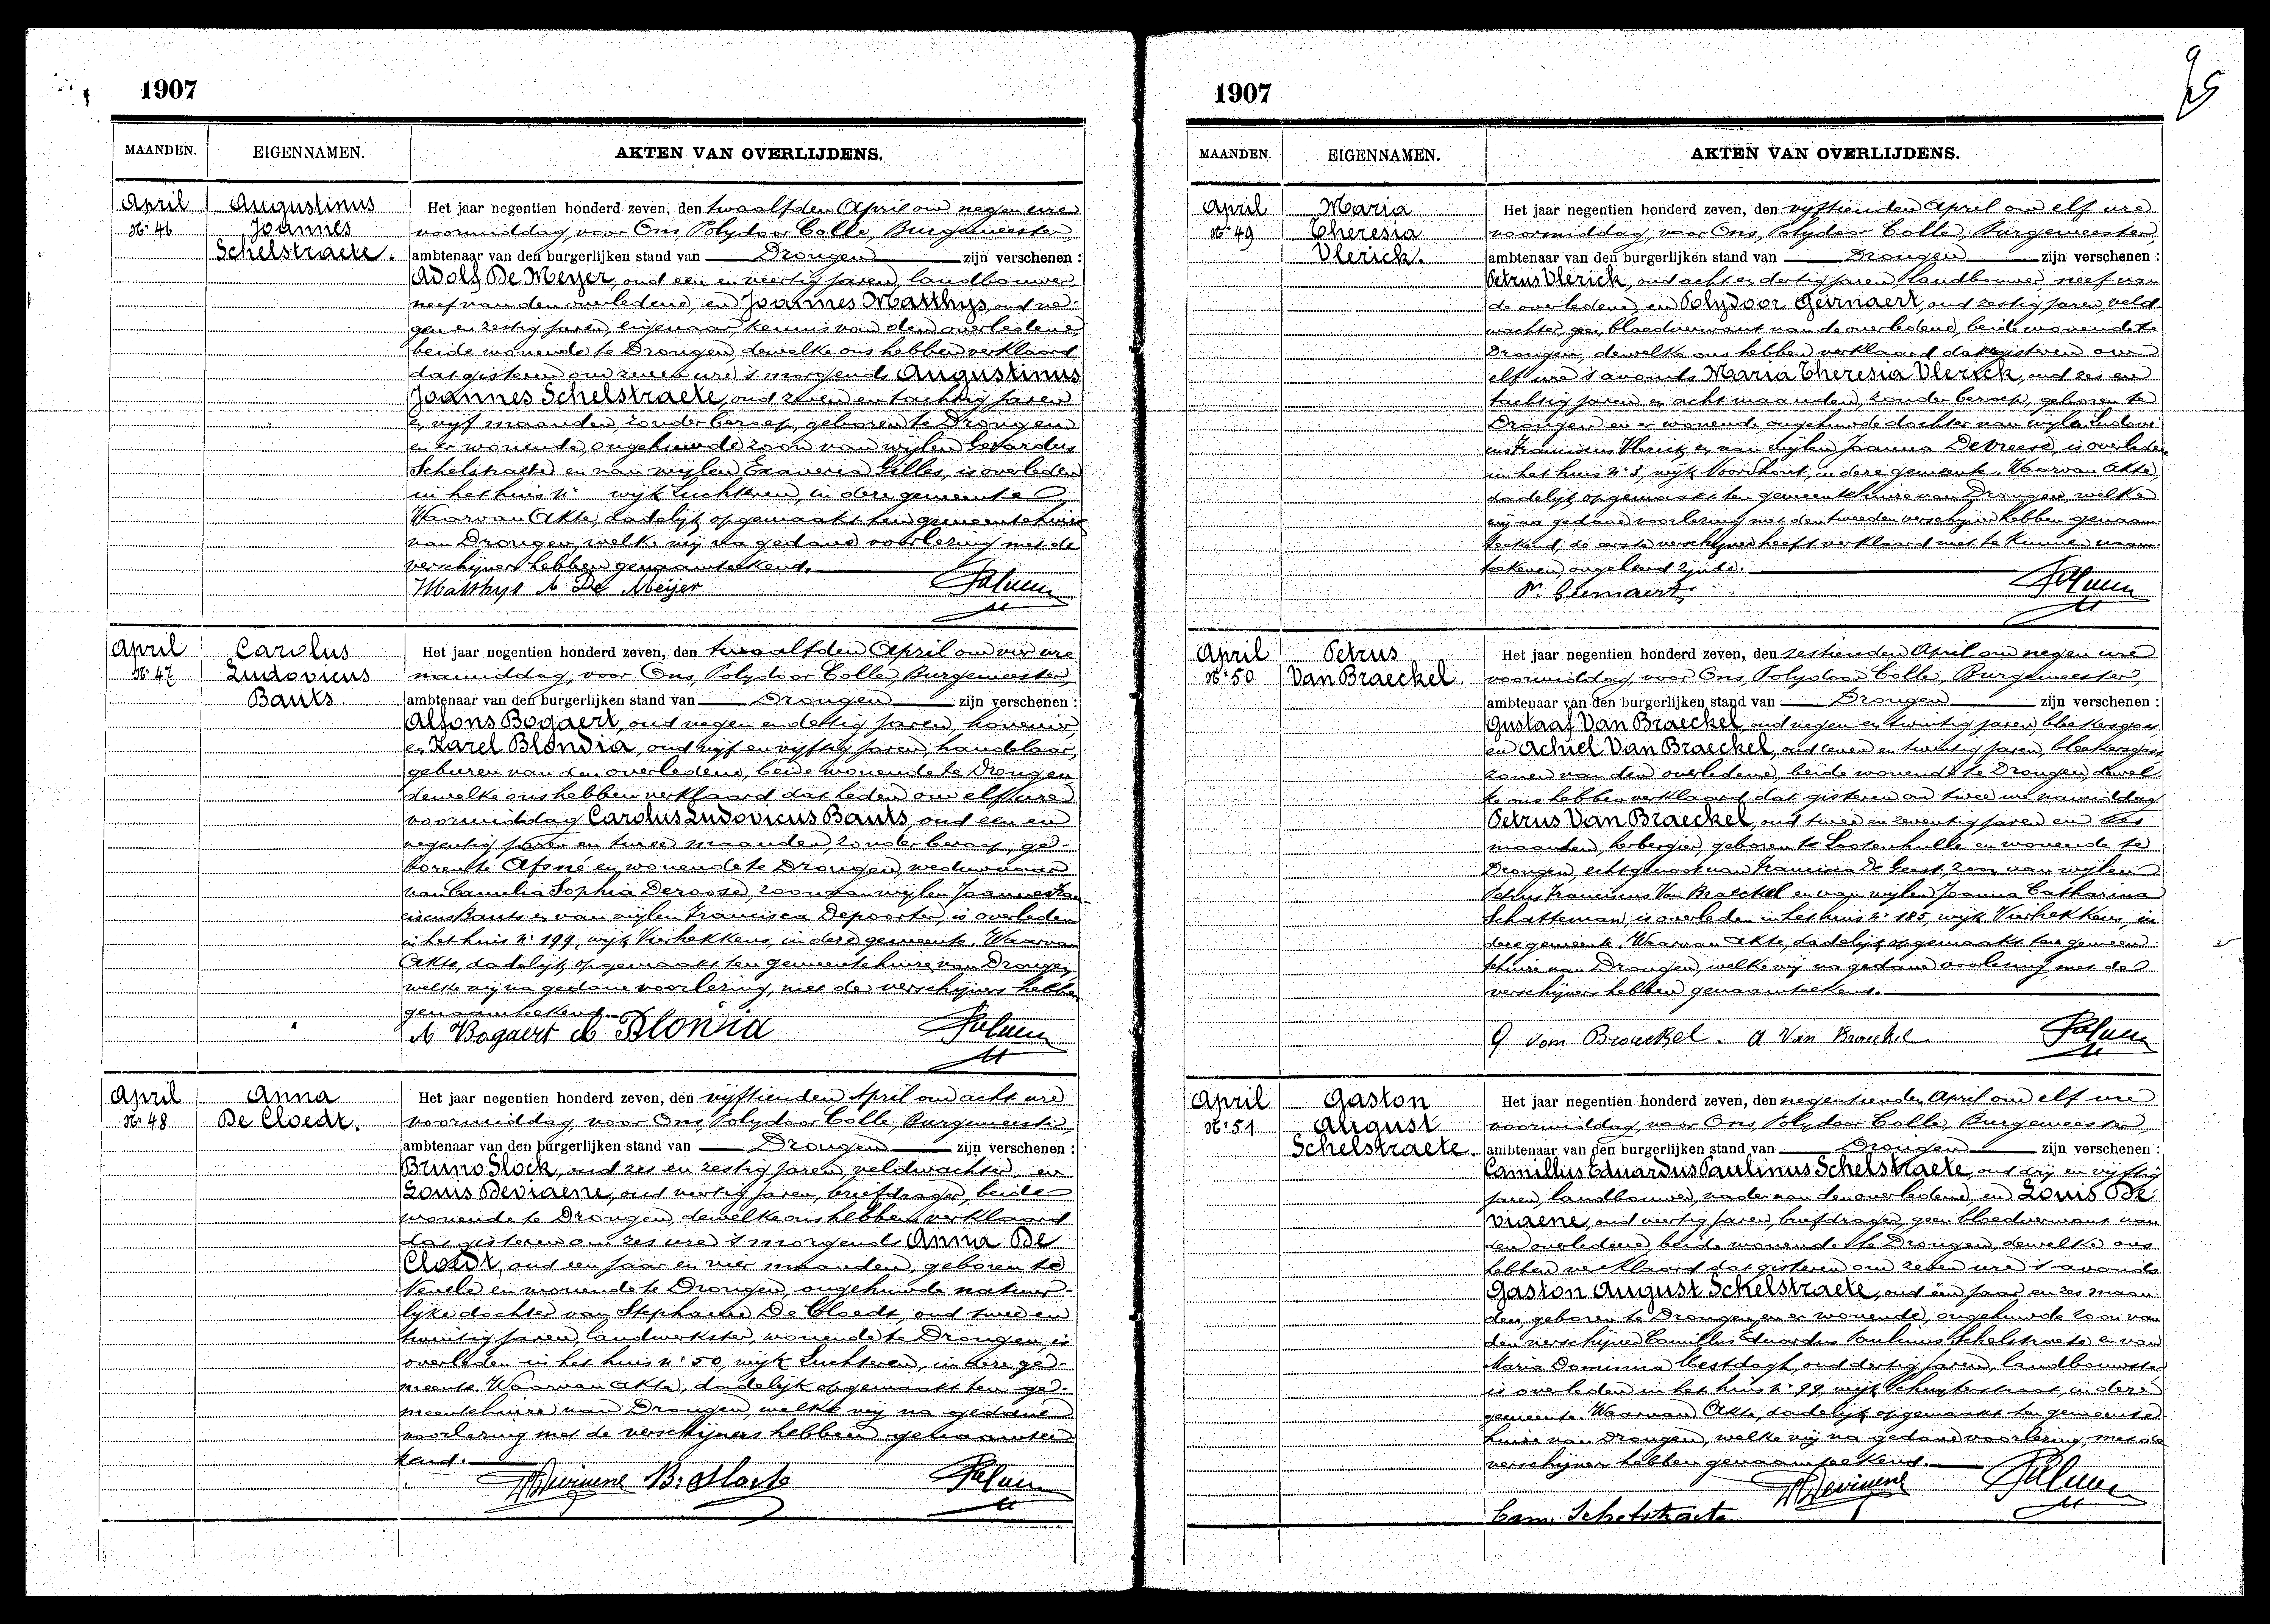 1907
MAANDEN. EIGENNAMEN. AKTEN VAN OVERLIJDENS.
April
No 46
Augustinus
Joannes
Schelstraete.
Het jaar negentien honderd zeven, den twaalfden April om negen ure
voormiddag, voor Ons, Polydoor Colle, Burgemeester,
ambtenaar van den burgerlijken stand van Drongen zijn verschenen :
Adolf De Meyer, oud een en veertig jaren, landbouwer,
neef van den overledene, en Joannes Matthys, oud ne-
gen en zestig jaren, eigenaar, kennis van den overledene,
beide wonende te Drongen, dewelke ons hebben verklaard
dat gisteren om zeven ure 's morgends Augustinus
Joannes Schelstraete, oud zeven en tachtig jaren
en vijf maanden, zonder beroep, geboren te Drongen
en er wonende, ongehuwde zoon van wijlen Gerardus
Schelstraete en van wijlen Exaveria Gilles, is overleden
in het huis No wijk Luchteren, in dere gemeente
Waarvan Akte, dadelijk opgemaakt ten gemeentehuize
van Drongen, welke wij na gedane voorlezing met de
verschijners hebben genaamteekend.
Matthys A De Meijer
April
No 47
Carolus
Ludovicus
Bauts.
Het jaar negentien honderd zeven, den twaalfden April om vier ure
namiddag, voor Ons, Polydoor Colle, Burgemeester,
ambtenaar van den burgerlijken stand van Drongen zijn verschenen :
Alfons Bogaert, oud negen en dertig jaren, hovenier,
en Karel Blondia, oud vijf en vijftig jaren, handelaar,
geburen van den overledene, beide wonende te Drongen
dewelke ons hebben verklaard dat heden om elf ure
voormiddag Carolus Ludovicus Bauts, oud een en
negentig jaren en twee maanden, zonder beroep, ge-
boren te Afsné en wonende te Drongen, weduwnaar
van Camelia Sophia Deroose, zoon van wijlen Joannes Fran-
ciscus Bauts en van wijlen Francisca Depoorter, is overleden
in het huis No 199, wijk Vierhekkens, in dere gemeente. Waarvan
Akte, dadelijk opgemaakt ten gemeentehuize van Drongen,
welke wij na gedane voorlezing, met de verschijners hebben
genaamteekend.
A Bogaert Blondia
April
No 48
Anna
De Cloedt.
Het jaar negentien honderd zeven, den vijftienden April om acht ure
voormiddag, voor Ons, Polydoor Colle, Burgemeester,
ambtenaar van den burgerlijken stand van Drongen zijn verschenen :
Bruno Slock, oud zes en zestig jaren, veldwachter, en
Louis Deviaene, oud veertig jaren, briefdrager, beide
wonende te Drongen, dewelke ons hebben verklaard
dat gisteren om zes ure 's morgends Anna De
Cloedt, oud een jaar en vier maanden, geboren te
Nevele en wonende te Drongen, ongehuwde natuur-
lijke dochter van Stephanie De Cloedt, oud twee en
twintig jaren, landwerkster, wonende te Drongen, is
overleden in het huis No 50, wijk Luchteren, in dere ge-
meente. Waarvan Akte, dadelijk opgemaakt ten ge-
meentehuize van Drongen, welke wij na gedane
voorlezing met de verschijners hebben genaamtee
kend.
Deviaene B. Slock
1907
MAANDEN. EIGENNAMEN. AKTEN VAN OVERLIJDENS.
April
No 49
Maria
Theresia
Vlerick.
Het jaar negentien honderd zeven, den vijftienden April om elf ure
voormiddag, voor Ons, Polydoor Colle, Burgemeester,
ambtenaar van den burgerlijken stand van Drongen zijn verschenen :
Petrus Vlerick, oud acht en dertig jaren, landbouwer, neef van
de overledene, en Polydoor Geirnaert, oud zestig jaren, veld-
wachter, geen bloedverwant van de overledene, beide wonende te
Drongen, dewelke ons hebben verklaard dat gisteren om
elf ure 's avonds Maria Theresia Vlerick, oud zes en
tachtig jaren en acht maanden, zonder beroep, geboren te
Drongen en er wonende, ongehuwde dochter van wijlen Ludovi-
cus Franciscus Vlerick en van wijlen Joanna Devreese, is overleden
in het huis No 3, wijk Noordhout, in dere gemeente. Waarvan Akte,
dadelijk opgemaakt ten gemeentehuize van Drongen, welke
wij na gedane voorlezing met den tweeden verschijner hebben genaam-
teekend, de eerste verschijner heeft verklaard niet te kunnen naam-
teekenen, ongeleerd zijnde.
P. Geirnaert
April
No 50
Petrus
Van Braeckel.
Het jaar negentien honderd zeven, den zestienden April om negen ure
voormiddag, voor Ons, Polydoor Colle, Burgemeester,
ambtenaar van den burgerlijken stand van Drongen zijn verschenen :
Gustaaf Van Braeckel, oud negen en twintig jaren, bleekersgast,
en Achiel Van Braeckel, oud zeven en twintig jaren, bleekersgast
zonen van den overledene, beide wonende te Drongen dewel-
ke ons hebben verklaard dat gisteren om twee ure namiddag
Petrus Van Braeckel, oud twee en zeventig jaren en zes
maanden, herbergier, geboren te Lootenhulle en wonende te
Drongen, echtgenoot van Francisca De Geest, zoon van wijlen
Petrus Franciscus Van Braeckel en van wijlen Joanna Catharina
Schatteman, is overleden in het huis No 185, wijk Vierhekkens, in
dere gemeente. Waarvan Akte, dadelijk opgemaakt ten gemeen-
tehuize van Drongen, welke wij na gedane voorlezing met de
verschijners hebben genaamteekend.
G van Braeckel. A Van Braeckel
April
No 51
Gaston
August
Schelstraete.
Het jaar negentien honderd zeven, den negentienden April om elf ure
voormiddag, voor Ons, Polydoor Colle, Burgemeester,
ambtenaar van den burgerlijken stand van Drongen zijn verschenen :
Camillus Eduardus Paulinus Schelstraete, oud drij en vijftig
jaren, landbouwer, vader van den overledene, en Louis De
viaene, oud veertig jaren, briefdrager, geen bloedverwant van
den overledene, beide wonende te Drongen, dewelke ons
hebben verklaard dat gisteren om zeven ure 's avonds
Gaston August Schelstraete, oud één jaar en zes maan-
den, geboren te Drongen en er wonende, ongehuwde zoon van
den verschijner Camillus Eduardus Paulinus Schelstraete en van
Maria Dominica Mestdagh, oud dertig jaren, landbouwster
is overleden in het huis No 99, wijk Schuyterstraat, in dere
gemeente. Waarvan Akte, dadelijk opgemaakt ten gemeente-
huize van Drongen, welke wij na gedane voorlezing, met de
verschijners hebben genaamteekend.
Deviaene
Cam. Schelstraete